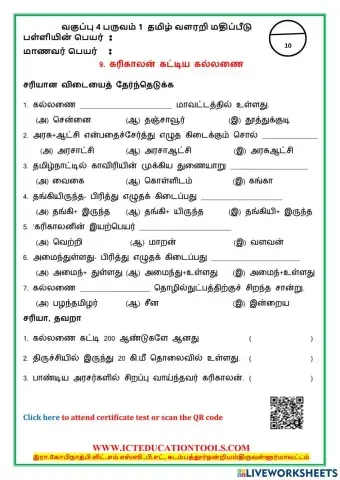 வகுப்பு 4 பருவம் 1 தமிழ் வளரறி மதிப்பீடு
பள்ளியின் பெயர் :
மாணவர் பெயர் :
10
9. கரிகாலன் கட்டிய கல்லணை
சரியான விடையைத் தேர்ந்தெடுக்க
1. கல்லணை ____________ மாவட்டத்தில் உள்ளது.
(அ) சென்னை (ஆ) தஞ்சாவூர் (இ) தூத்துக்குடி
2. அரசு+ஆட்சி என்பதைச்சேர்த்து எழுத கிடைக்கும் சொல் ____________
(அ) அரசாட்சி (ஆ) அரசாஆட்சி (இ) அரசுஆட்சி
3. தமிழ்நாட்டில் காவிரியின் முக்கிய துணையாறு ____________
(அ) வைகை (ஆ) கொள்ளிடம் (இ) கங்கா
4. தங்கியிருந்த- பிரித்து எழுதக் கிடைப்பது ____________
(அ) தங்கி+ இருந்த (ஆ) தங்கி+ யிருந்த (இ) தங்கியி+ இருந்த
5. 'கரிகாலனின் இயற்பெயர் ____________
(அ) வெற்றி (ஆ) மாறன் (இ) வளவன்
6. அமைந்துள்ளது- பிரித்து எழுதக் கிடைப்பது ____________
(அ) அமைந்+ துள்ளது (ஆ) அமைந்து+உள்ளது (இ) அமைந்+உள்ளது
7. கல்லணை ____________ தொழில்நுட்பத்திற்குச் சிறந்த சான்று.
(அ) பழந்தமிழர் (ஆ) சீன (இ) இன்றைய
சரியா, தவறா
1. கல்லணை கட்டி 200 ஆண்டுகளே ஆனது ( )
2. திருச்சியில் இருந்து 20 கி.மீ தொலைவில் உள்ளது. ( )
3. பாண்டிய அரசர்களில் சிறப்பு வாய்ந்தவர் கரிகாலன். ( )
Click here to attend certificate test or scan the QR code
WWW.ICTEDUCATIONTOOLS.COM
LIVEWORKSHEETS